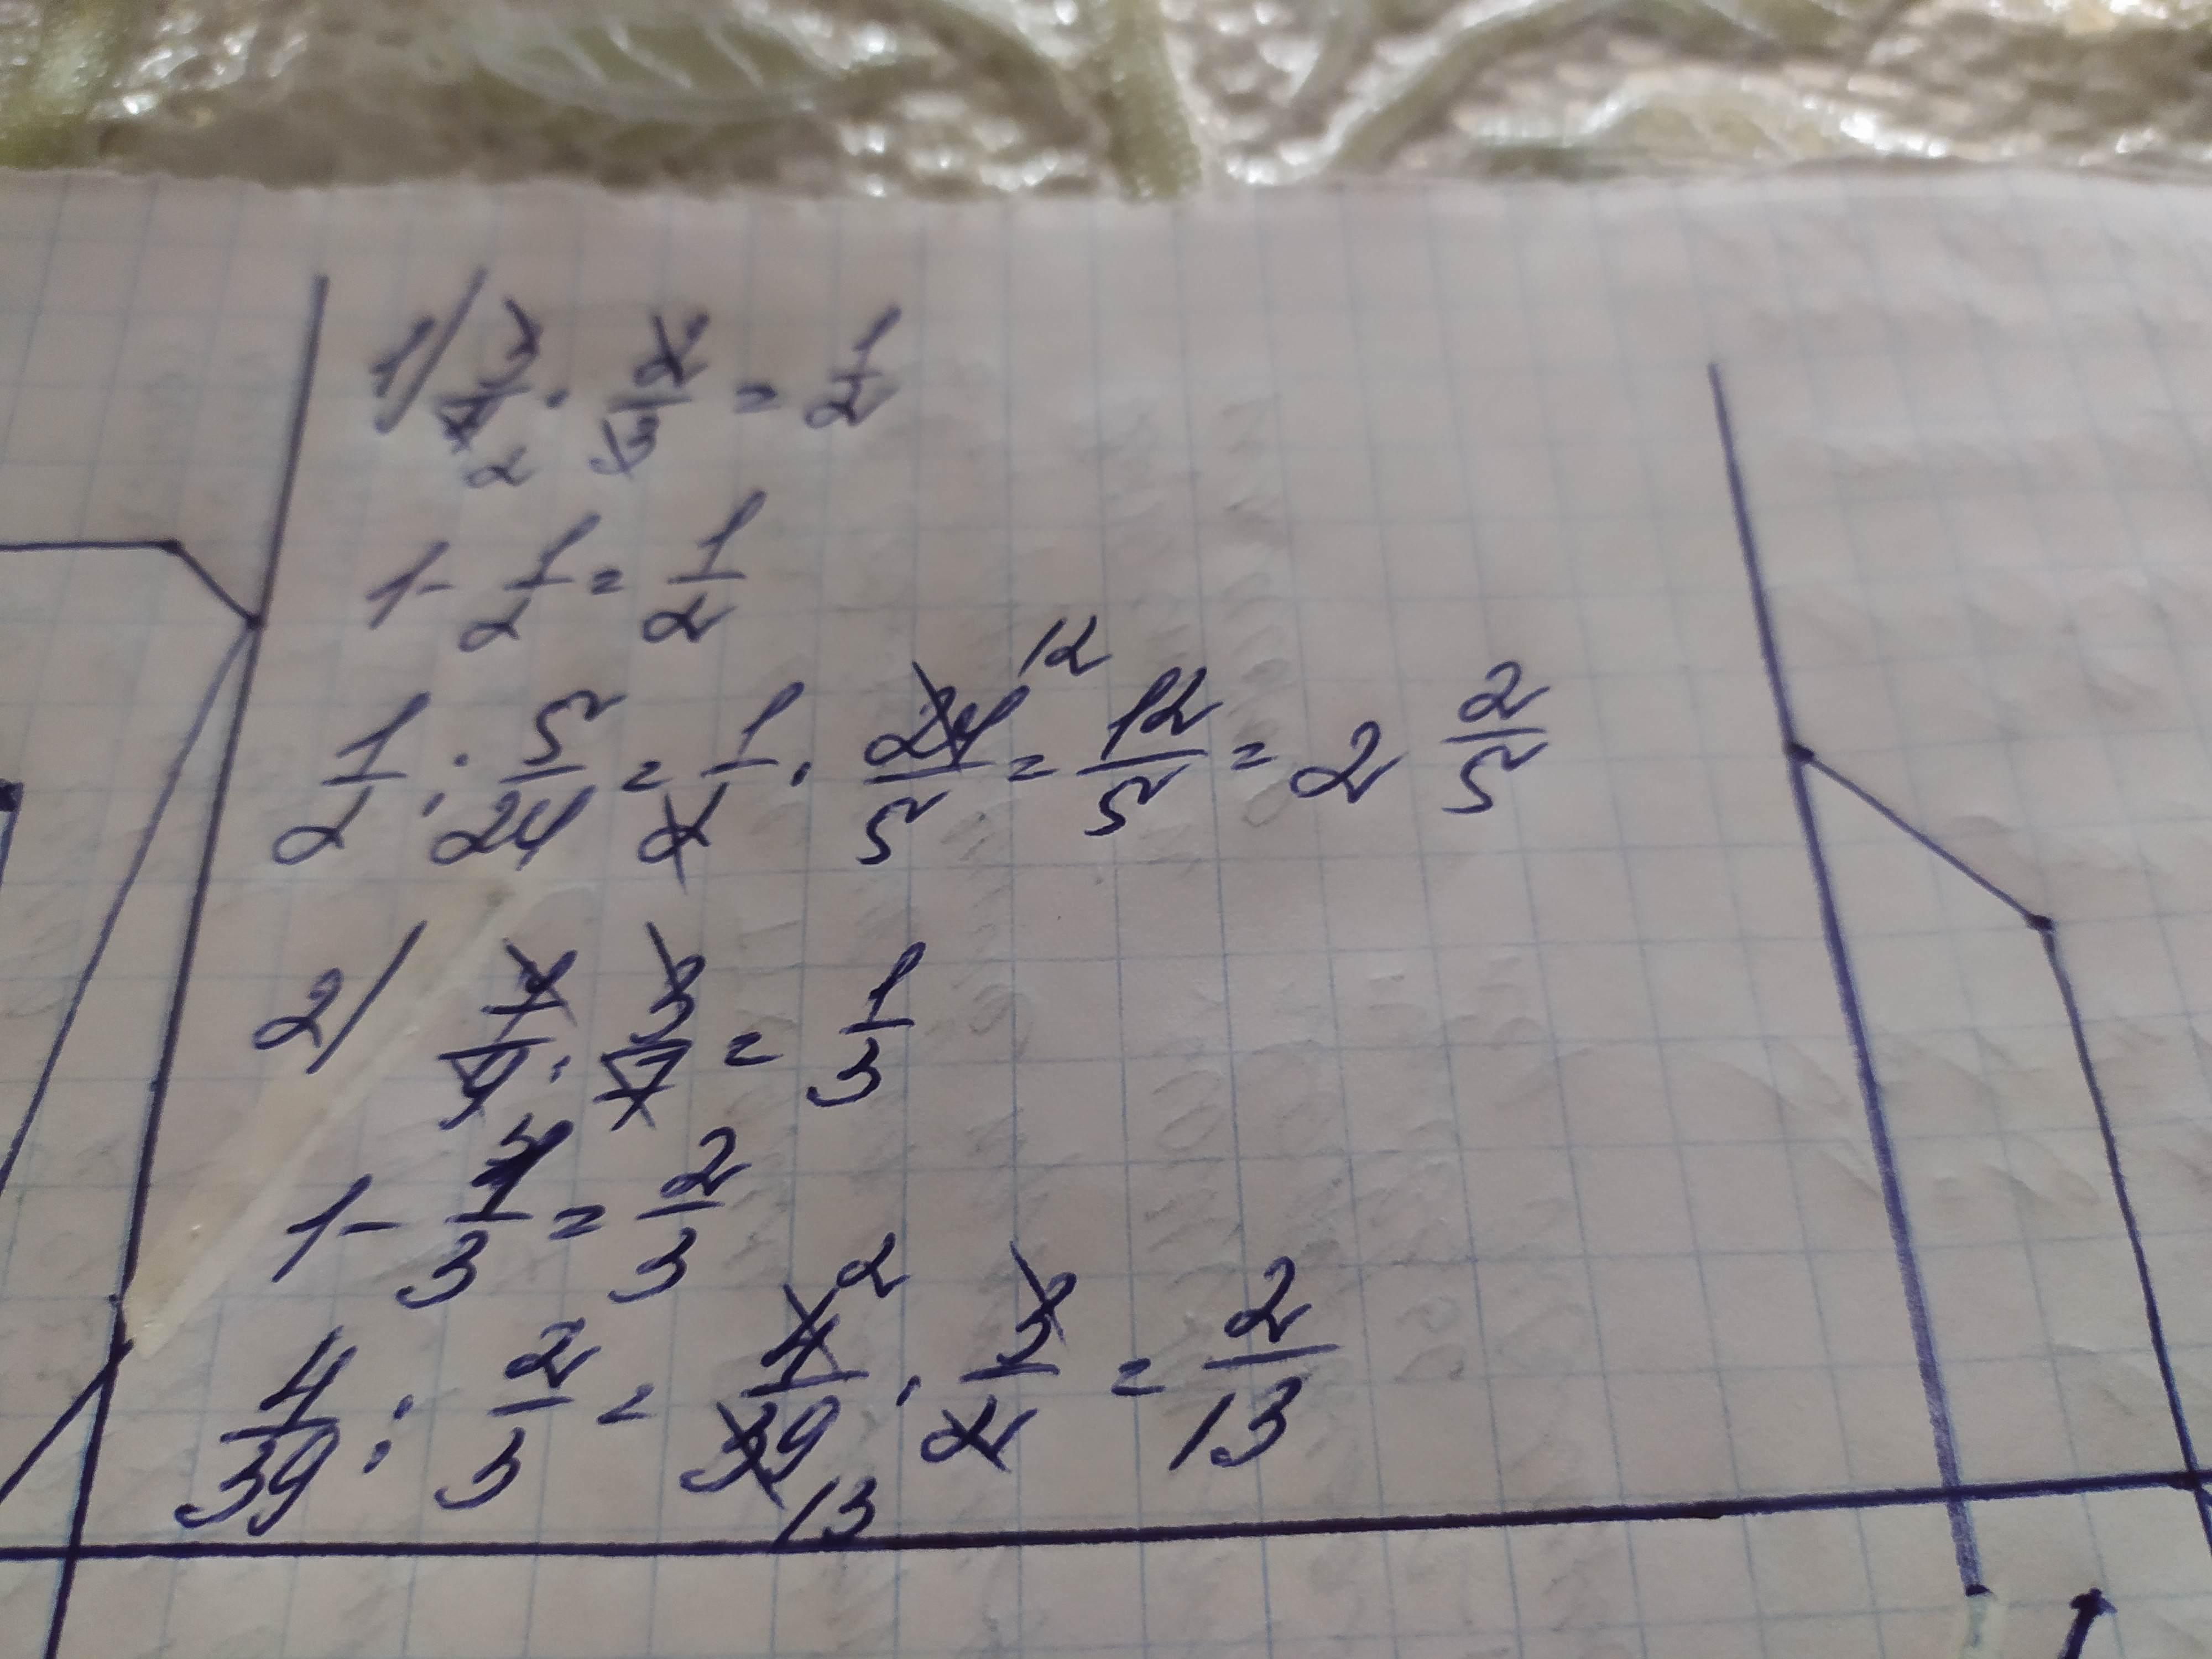 1) 3/4 · 2/3 = 1/2
2
1 - 1/2 = 1/2
12
1/2 : 5/24 = 1/2 · 24/5 = 12/5 = 2 2/5
2) 7/9 · 3/7 = 1/3
1 - 1/3 = 2/3
2
4/39 : 2/3 = 4/39 · 3/2 = 2/13
13